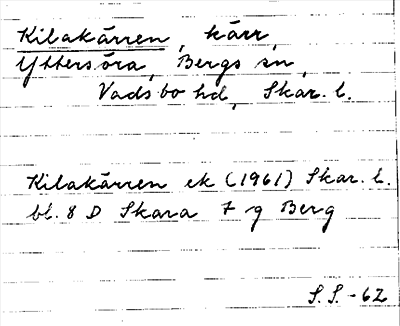 Kilakärren, kärr,
Yttersöra, Bergs sn,
Vadsbo hd, Skar. l.
Kilakärren ek (1961) Skar. l.
bl. 8 D Skara 7 g Berg
S.S. -62